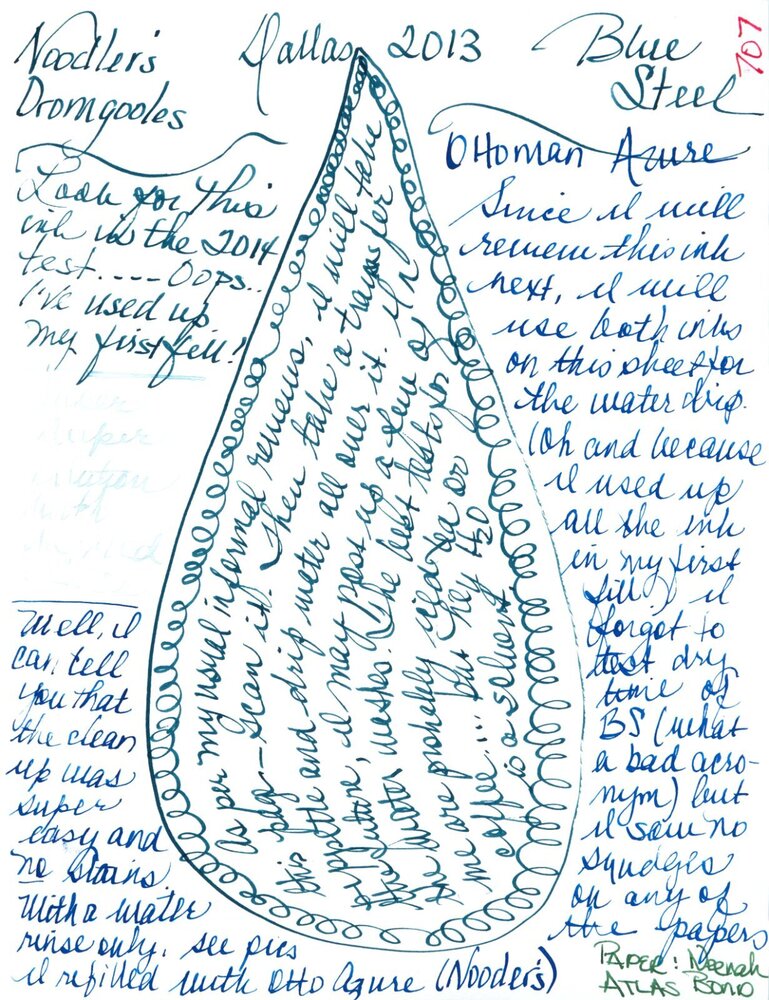 Noodler's Dallas 2013 Blue
Dromgooles Steel
707
Look for this
ink in the 2014
test.---- Oops..
I've used up
my first fill!
super
dilution
with
Well, I
can tell
you that
the clean
up was
super
easy and
no stains
With a water
rinse only. see pics
I refilled with Otto Azure (Nooder's)
As per my usual informal reviews, I will take
this page -- scan it. Then take a transfer
pipette and drip water all over it. In
the future, I may post up a few of
the water washes. The best tests for
we are probably iced tea or
coffee.... but hey H2O
is a solvent
Ottoman Azure
Since I will
review this ink
next, I will
use both inks
on this sheet for
the water drip.
(Oh and because
I used up
all the ink
in my first
fill) I
forgot to
test dry
time of
BS (what
a bad acro-
nym) but
I saw no
smudges
on any of
the papers
PAPER: Neenah
ATLAS BOND